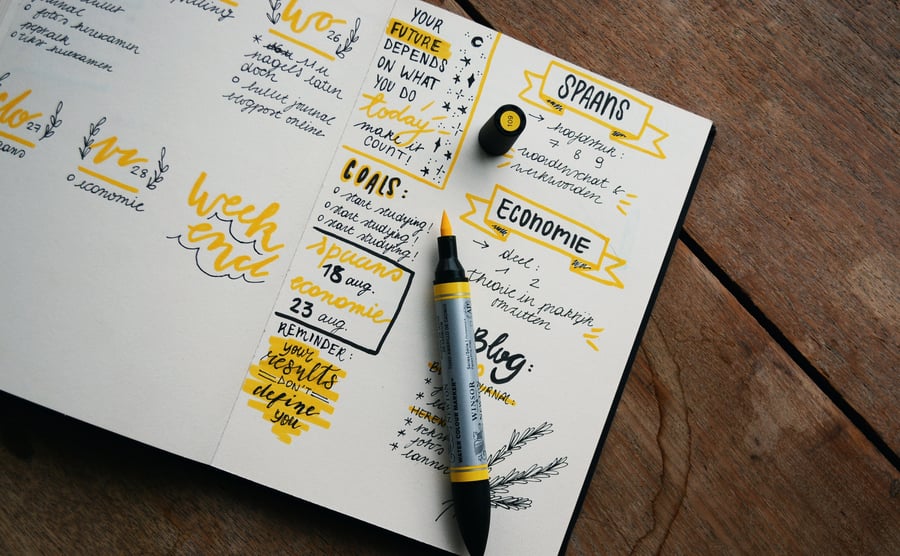 foto's herexamen
herexamen
27
wo 26
11u
nagels laten
doen
o bullet journal
blogpost online
vr 28
o economie
week
end
YOUR
FUTURE
DEPENDS
ON WHAT
YOU DO
today
make it
COUNT!
GOALS:
o start studying!
o start studying!
o start studying!
spaans
18 aug.
economie
23 aug.
REMINDER:
your
results
DON'T
define
you
SPAANS
→ hoofdstuk:
7 & 8 & 9
woordenschat &
werkwoorden
ECONOMIE
→ deel:
1 2
theorie in praktijk
omzetten
Blog:
JOURNAL:
HEREN
foto's
109
WATER COLOUR MARKER
WINSOR